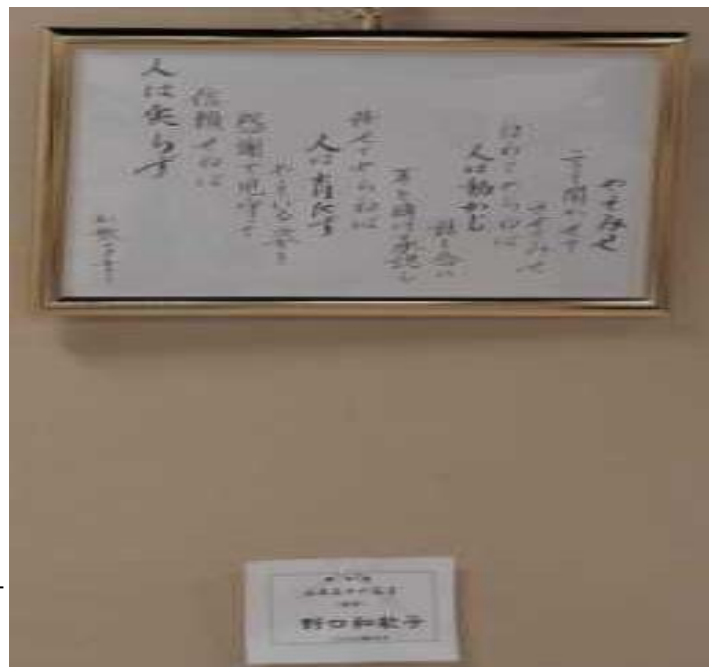 やってみせ
言って聞かせて
させてみせ
ほめてやらねば
人は動かじ
話し合い
耳を傾け承認し
任せてやらねば
人は育たず
やっている姿を
感謝で見守って
信頼せねば
人は実らず
野口和歌子